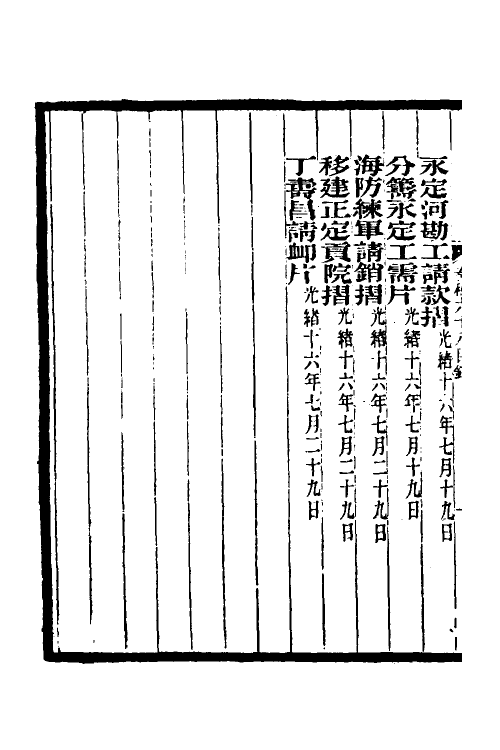 永定河勘工請款摺光緒十六年七月十九日
分籌永定工需片光緒十六年七月十九日
海防練軍請銷摺光緒十六年七月二十九日
移建正定貢院摺光緒十六年七月二十九日
丁壽昌請卹片光緒十六年七月二十九日